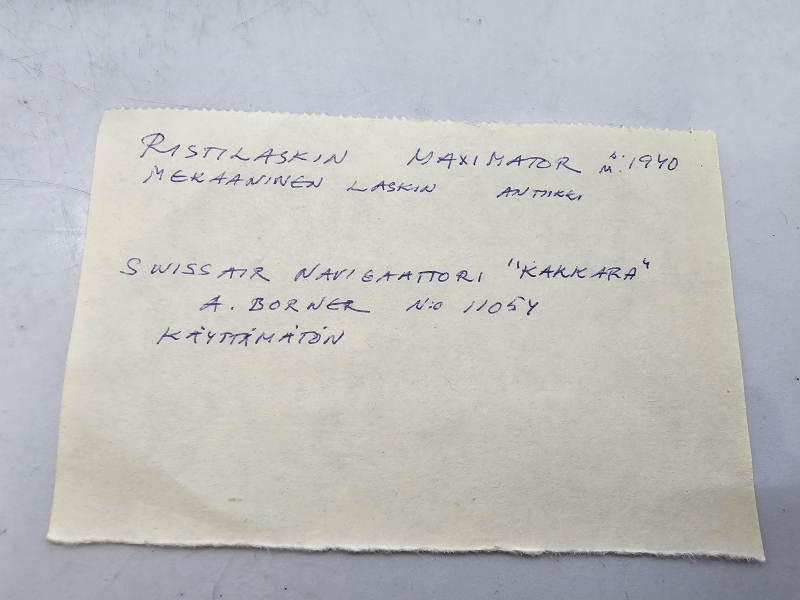 RISTILASKIN MAXIMATOR M. 1940
MEKAANINEN LASKIN ANTIIKKI
SWISSAIR NAVIGAATTORI "KAKKARA"
A. BORNER N:o 11054
KÄYTTÄMÄTÖN